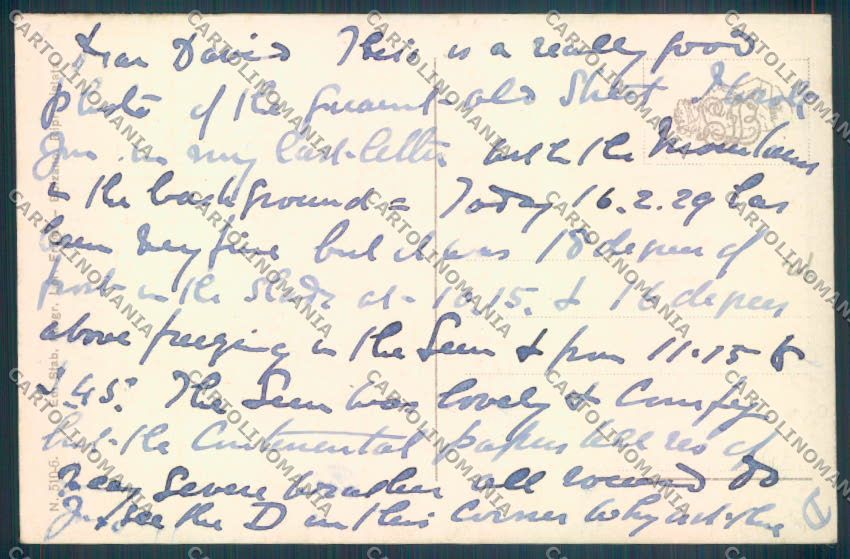 Dear David This is a really good
photo of the quaint old Street I wrote
you in my last letter with the Mountains
in the background = Today 16.2.29 has
been very fine but it was 18 degrees of
frost in the Shade at 10.15. & 16 degrees
above freezing in the Sun & from 11.15 to
2.45. The Sun was lovely &
but the Continental papers tell us of
very severe weather all round Do
you see the D in this corner why ask the
N. 510-6.
CARTOLINOMANIA